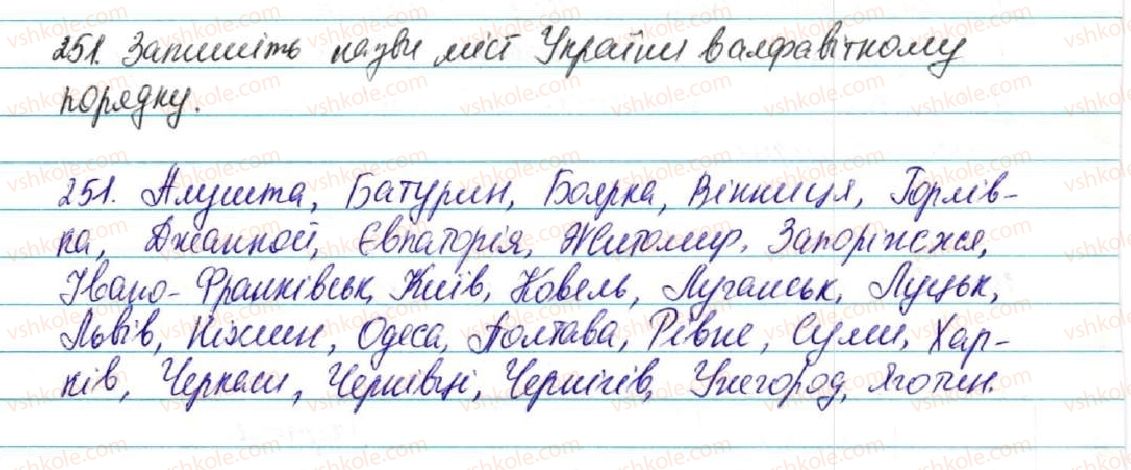 251. Запишіть назви міст України в алфавітному
порядку.
251. Алушта, Батурин, Боярка, Вінниця, Горлів-
ка, Джанкой, Євпаторія, Житомир, Запоріжжя,
Івано-Франківськ, Київ, Ковель, Луганськ, Луцьк,
Львів, Ніжин, Одеса, Полтава, Рівне, Суми, Хар-
ків, Черкаси, Чернівці, Чернігів, Ужгород, Яготин.